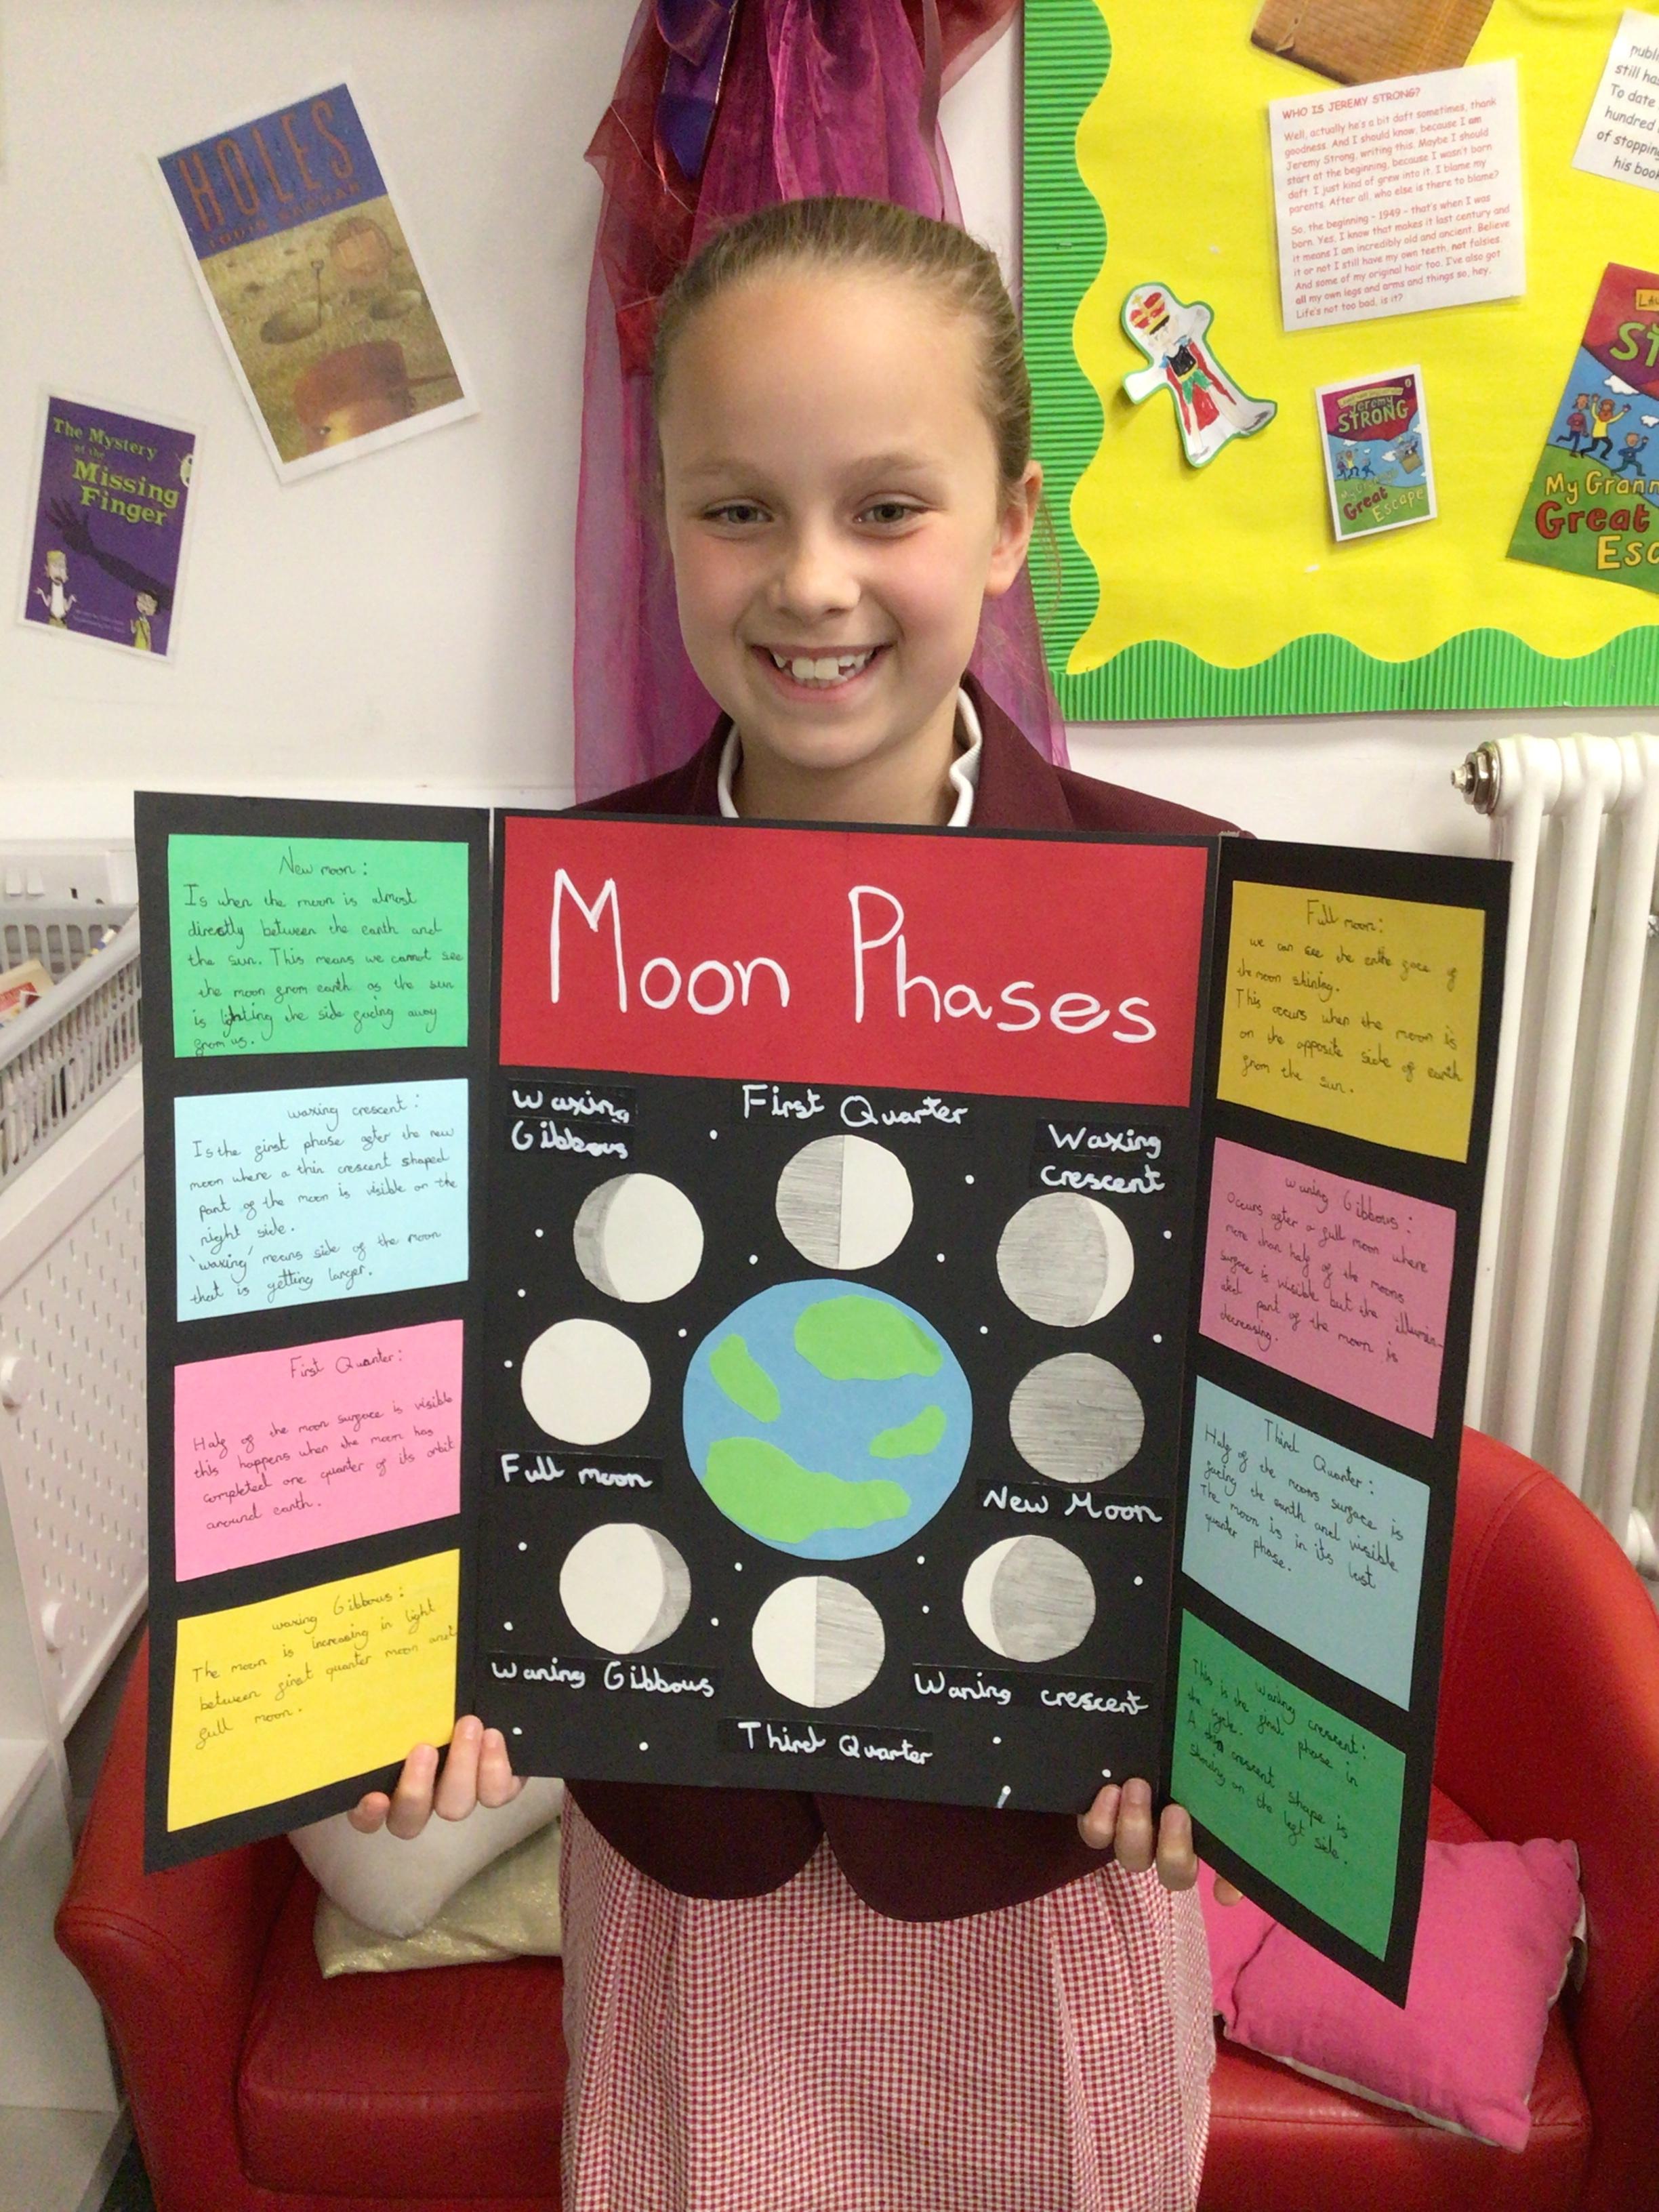 HOLES
LOUIS SACHAR
The Mystery
of the
Missing
Finger
WHO IS JEREMY STRONG?
Well, actually he's a bit daft sometimes, thank
goodness. And I should know, because I am
Jeremy Strong, writing this. Maybe I should
start at the beginning, because I wasn't born
daft. I just kind of grew into it. I blame my
parents. After all, who else is there to blame?
So, the beginning - 1949 - that's when I was
born. Yes, I know that makes it last century and
it means I am incredibly old and ancient. Believe
it or not I still have my own teeth, not falsies
And some of my original hair too. I've also got
all my own legs and arms and things so, hey.
Life's not too bad, is it?
publi
still has
To date
hundred
of stopping
his book
Jeremy
STRONG
Great Escape
LAU
ST
My Grann
Great
Esc
New moon:
Is when the moon is almost
directly between the earth and
the sun. This means we cannot see
the moon from earth as the sun
is lighting the side facing away
from us.
waxing crescent:
Is the first phase after the new
moon where a thin crescent shaped
part of the moon is visible on the
right side.
'waxing' means side of the moon
that is getting larger.
First Quarter:
Half of the moon surface is visible
this happens when the moon has
completed one quarter of its orbit
around earth.
waxing Gibbous:
The moon is increasing in light
between first quarter moon and
full moon.
Moon Phases
Waxing
Gibbous
First Quarter
Waxing
crescent
Full moon
New Moon
Waning Gibbous
Waning crescent
Third Quarter
Full moon:
we can see the entire face of
the moon shining.
This occurs when the moon is
on the opposite side of earth
from the sun.
waning Gibbous:
Occurs after a full moon where
more than half of the moons
surface is visible but the illumin-
ated part of the moon is
decreasing.
Third Quarter:
Half of the moons surface is
facing the earth and visible
The moon is in its last
quarter phase.
Waning crescent:
This is the final phase in
the cycle.
A thin crescent shape is
showing on the left side.